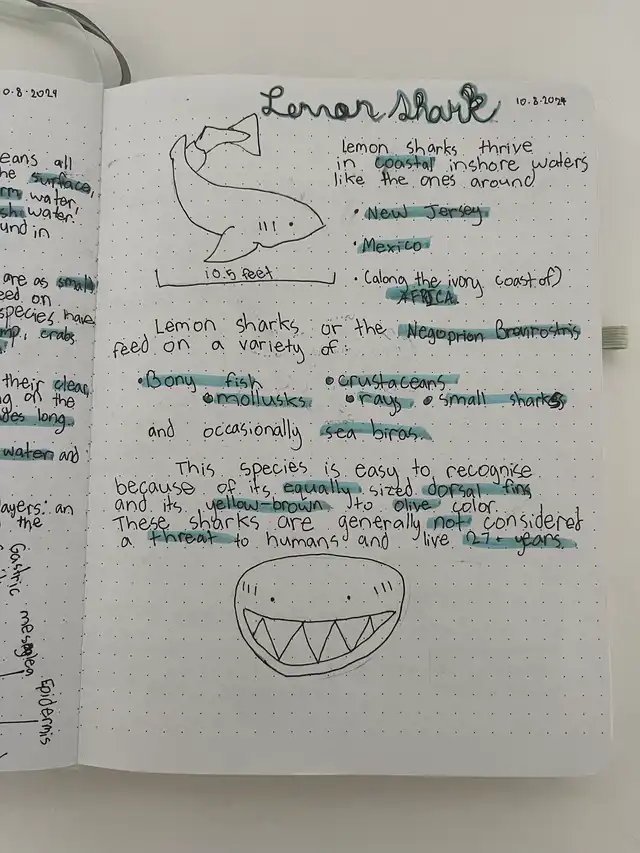 0.8.2024
eans all
he surface,
rm water,
sh water.
und in
are as small
eed on
species have
mp, crabs
their clear,
ng on the
des long.
water and
ayers: an
the
Gastric
mesoglea
Epidermis
Lemon shark
10.8.2024
lemon sharks thrive
in coastal inshore waters
like the ones around
• New Jersey
• Mexico
• (along the ivory coast of)
AFRICA
10.5 feet
Lemon sharks or the Negaprion Brevirostris
feed on a variety of:
• Bony fish • crustaceans
• mollusks • rays • small sharks
and occasionally sea birds.
This species is easy to recognise
because of its equally sized dorsal fins
and its yellow-brown to olive color.
These sharks are generally not considered
a threat to humans and live 27+ years.